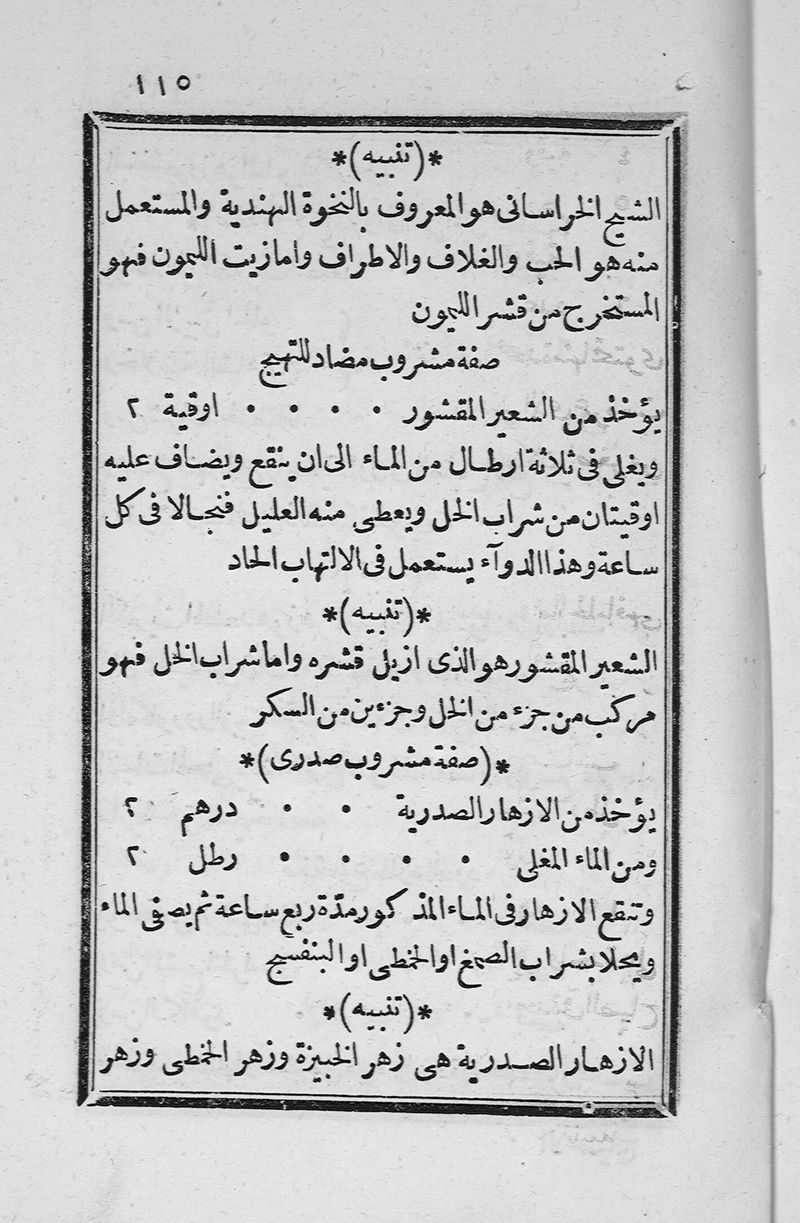 ١١٥
*(تنبيه)*
الشيح الخراسانى هو المعروف بالنخوة الهندية والمستعمل
منه هو الحب والغلاف والاطراف واما زيت الليمون فهو
المستخرج من قشر الليمون
صفة مشروب مضاد للتهيج
يؤخذ من الشعير المقشور • • • • اوقية ٢
ويغلى فى ثلاثة ارطال من الماء الى ان ينقع ويضاف عليه
اوقيتان من شراب الخل ويعطى منه العليل فنجالا فى كل
ساعة وهذا الدوآء يستعمل فى الالتهاب الحاد
*(تنبيه)*
الشعير المقشور هو الذى ازيل قشره واما شراب الخل فهو
مركب من جزء من الخل وجزءين من السكر
*(صفة مشروب صدرى)*
يؤخذ من الازهار الصدرية • • درهم ٢
ومن الماء المغلى • • • • رطل ٢
وتنقع الازهار فى الماء المذكور مدّة ربع ساعة ثم يصفى الماء
ويحلا بشراب الصمغ او الخطمى او البنفسج
*(تنبيه)*
الازهار الصدرية هى زهر الخبيزة وزهر الخطمى وزهر